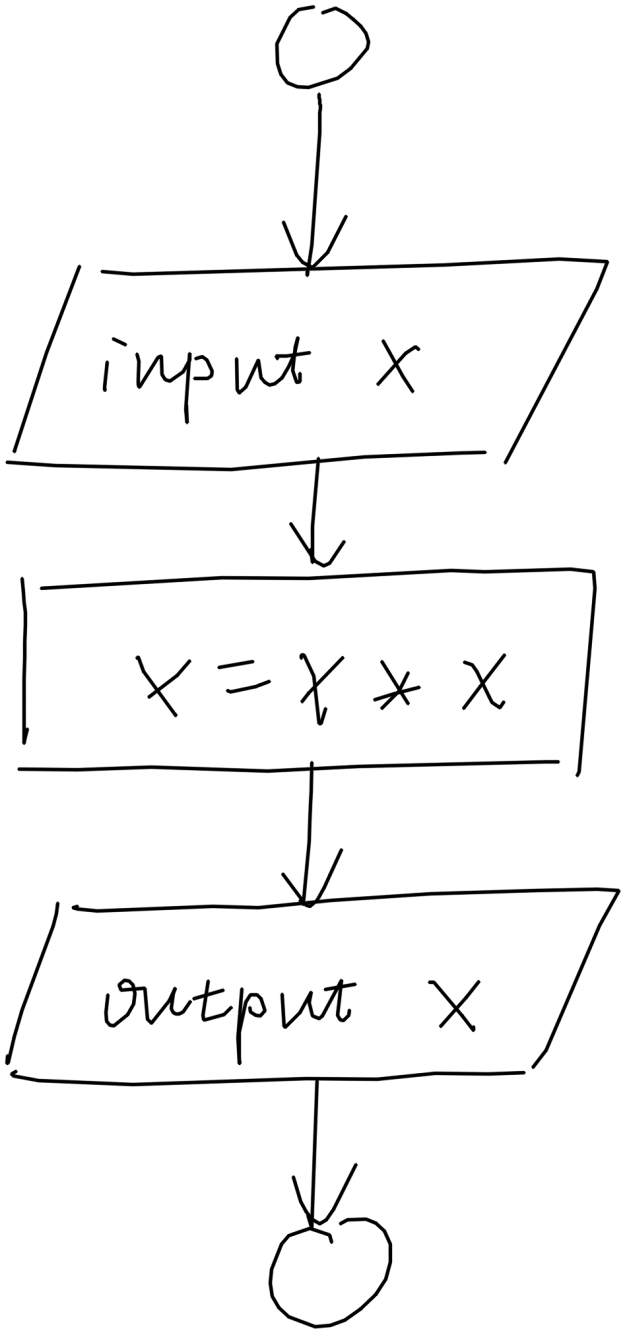 input x
x = x * x
output x